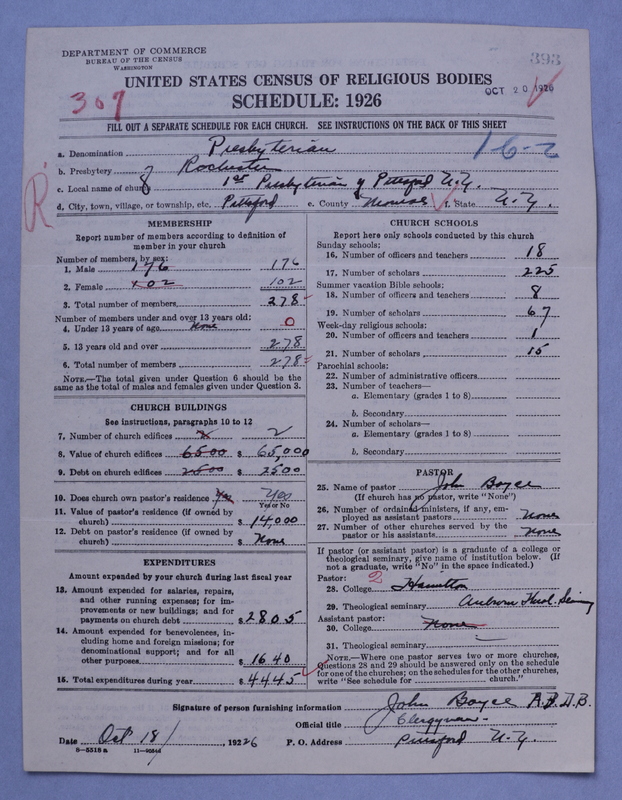 DEPARTMENT OF COMMERCE
BUREAU OF THE CENSUS
WASHINGTON
393
UNITED STATES CENSUS OF RELIGIOUS BODIES
OCT 20 1926
307
SCHEDULE: 1926
FILL OUT A SEPARATE SCHEDULE FOR EACH CHURCH. SEE INSTRUCTIONS ON THE BACK OF THIS SHEET
a. Denomination Presbyterian
16-2
b. Presbytery of Rochester
c. Local name of church 1st Presbyterian of Pittsford N.Y.
R
d. City, town, village, or township, etc. Pittsford e. County Monroe f. State N.Y.
MEMBERSHIP
Report number of members according to definition of
member in your church
Number of members, by sex:
1. Male 176 176
2. Female 102 102
3. Total number of members, 278
Number of members under and over 13 years old:
4. Under 13 years of age None 0
5. 13 years old and over 278
6. Total number of members 278
NOTE.—The total given under Question 6 should be the
same as the total of males and females given under Question 3.
CHURCH BUILDINGS
See instructions, paragraphs 10 to 12
7. Number of church edifices 2 2
8. Value of church edifices 6500 $ 65,000
9. Debt on church edifices 2500 $ 2500
10. Does church own pastor's residence Yes Yes
Yes or No
11. Value of pastor's residence (if owned by
church) $ 14000
12. Debt on pastor's residence (if owned by
church) $ None
EXPENDITURES
Amount expended by your church during last fiscal year
13. Amount expended for salaries, repairs,
and other running expenses; for im-
provements or new buildings; and for
payments on church debt $ 2805
14. Amount expended for benevolences, in-
cluding home and foreign missions; for
denominational support; and for all
other purposes $ 1640
15. Total expenditures during year $ 4445
CHURCH SCHOOLS
Report here only schools conducted by this church
Sunday schools:
16. Number of officers and teachers 18
17. Number of scholars 225
Summer vacation Bible schools:
18. Number of officers and teachers 8
19. Number of scholars 67
Week-day religious schools:
20. Number of officers and teachers 1
21. Number of scholars 15
Parochial schools:
22. Number of administrative officers
23. Number of teachers—
a. Elementary (grades 1 to 8)
b. Secondary
24. Number of scholars—
a. Elementary (grades 1 to 8)
b. Secondary
PASTOR
25. Name of pastor John Boyce
(If church has no pastor, write "None")
26. Number of ordained ministers, if any, em-
ployed as assistant pastors None
27. Number of other churches served by the
pastor or his assistants None
If pastor (or assistant pastor) is a graduate of a college or
theological seminary, give name of institution below. (If
not a graduate, write "No" in the space indicated.)
Pastor: 2
28. College Hamilton
29. Theological seminary Auburn Theol. Seminy
Assistant pastor:
30. College None
31. Theological seminary
NOTE.—Where one pastor serves two or more churches,
Questions 28 and 29 should be answered only on the schedule
for one of the churches; on the schedules for the other churches,
write "See schedule for church."
Signature of person furnishing information John Boyce A.B. D.B.
Official title Clergyman
Date Oct 18/ , 1926 26 P. O. Address Pittsford N.Y.
8—5518 a